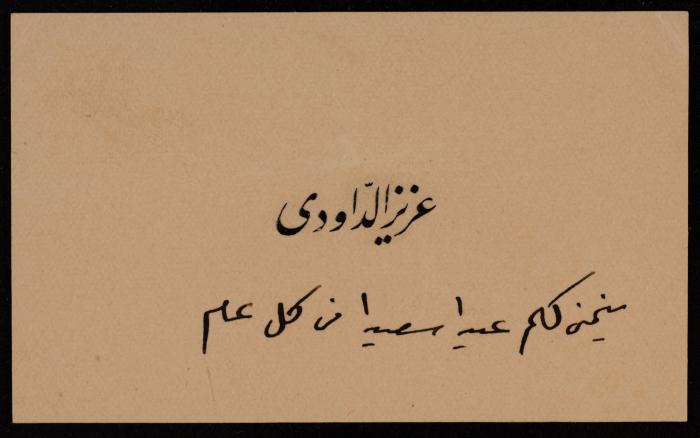 عزيز الداودى
يتمنى لكم عيدا سعيدا من كل عام